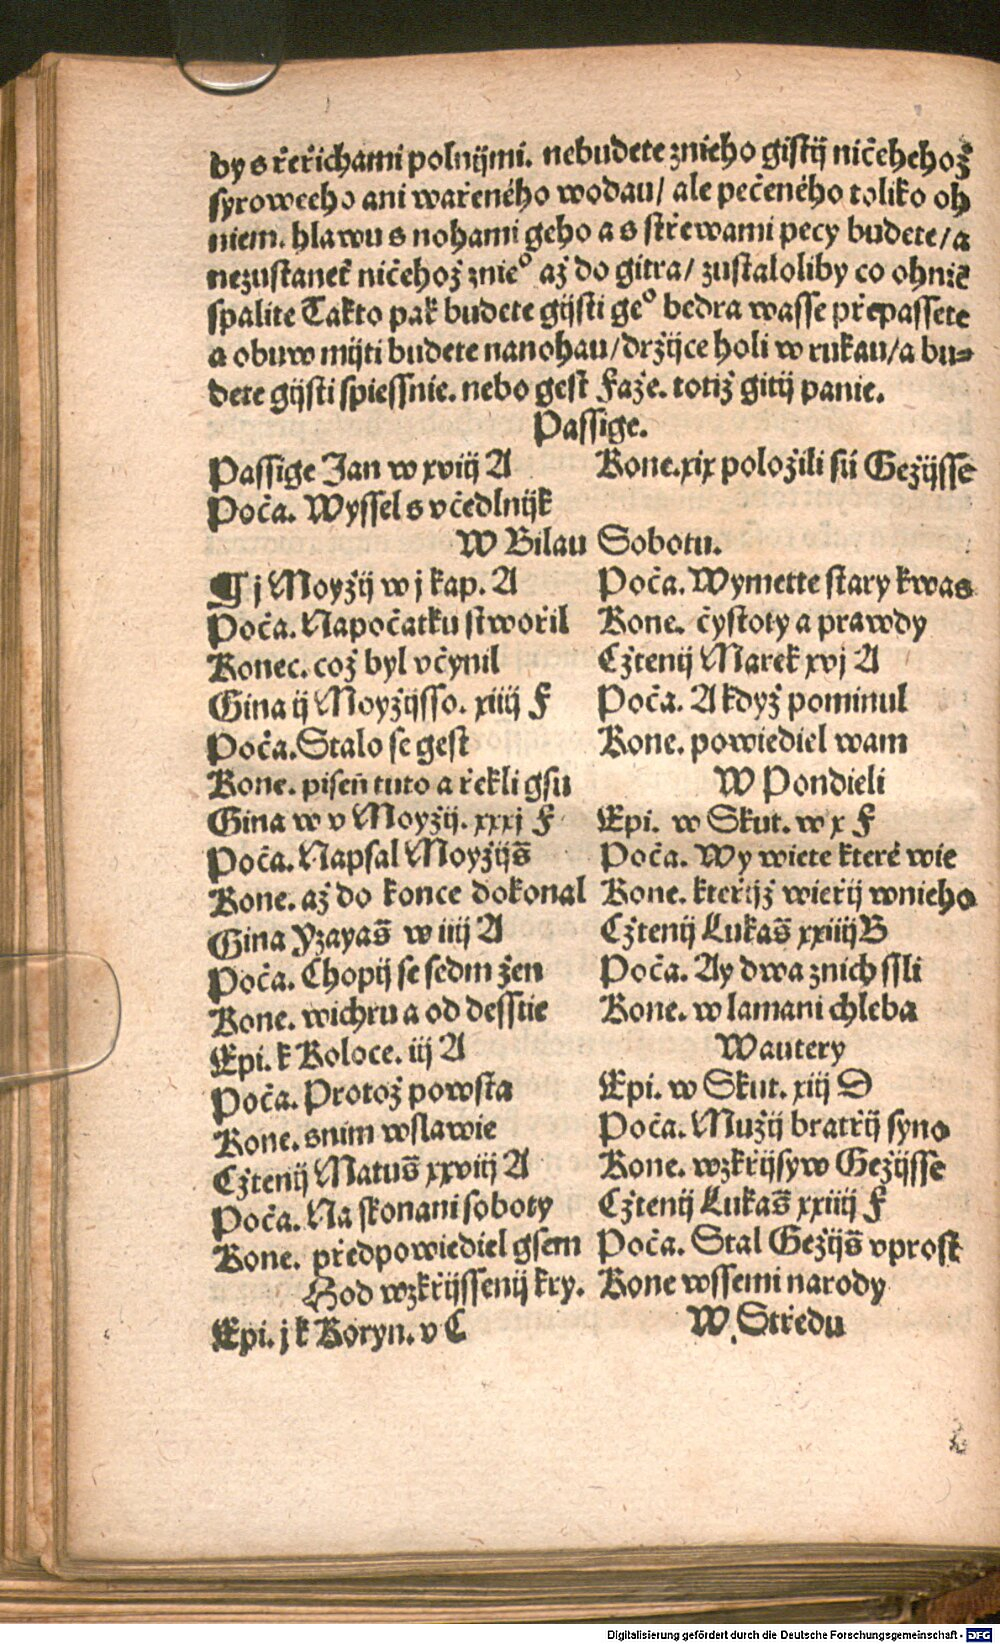 by s řeřichami polnijmi. nebudete znieho gistij ničehehož
syroweeho ani wařeného wodau/ ale pečeného toliko oh
niem. hlawu s nohami geho a s střewami pecy budete/a
nezustaneť ničehož znieº až do gitra/ zustaloliby co ohniē
spalite Takto pak budete gijsti geº bedra wasse přepassete
a obuw mijti budete nanohau/držijce holi w rukau/a bu=
dete gijsti spiessnie. nebo gest Faže. totiž gitij panie.
Passige.
Passige Jan w xviij A
Poča. Wyssel s včedlnijk
Kone.xix položili sú Gežijsse
W Bilau Sobotu.
¶ j Moyžij w j kap. A
Poča. Napočatku stwořil
Konec. což byl včynil
Gina ij Moyžijsso. xiiij F
Poča.Stalo se gest
Kone. piseň tuto a řekli gsu
Gina w v Moyžij. xxxj F
Poča. Napsal Moyžijš
Kone. až do konce dokonal
Gina Yzayaš w iiij A
Poča. Chopij se sedm žen
Kone. wichru a od desstie
Epi. k Koloce. iij A
Poča. Protož powsta
Kone. snim wslawie
Cžtenij Matuš xxviij A
Poča. Na skonani soboty
Kone. předpowiediel gsem
Hod wzkřijssenij kry.
Epi. j k Koryn. v C
Poča. Wymette stary kwas
Kone. čystoty a prawdy
Cžtenij Marek xvj A
Poča. A když pominul
Kone. powiediel wam
W Pondieli
Epi. w Skut. w x F
Poča. Wy wiete které wie
Kone. kteřijž wieřij wnieho
Cžtenij Lukaš xxiiij B
Poča. Ay dwa znich ssli
Kone. w lamani chleba
Wautery
Epi. w Skut. xiij D
Poča. Mužij bratřij syno
Kone. wzkřijsyw Gežijsse
Cžtenij Lukaš xxiiij F
Poča. Stal Gežijš vprost
Kone wssemi narody
W Středu
Digitalisierung gefördert durch die Deutsche Forschungsgemeinschaft - DFG